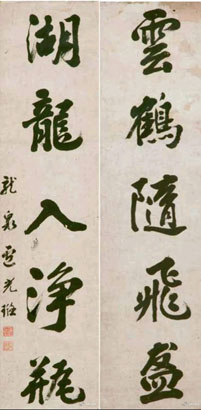 雲鶴隨飛盞
湖龍入淨瓶
龍泉 光